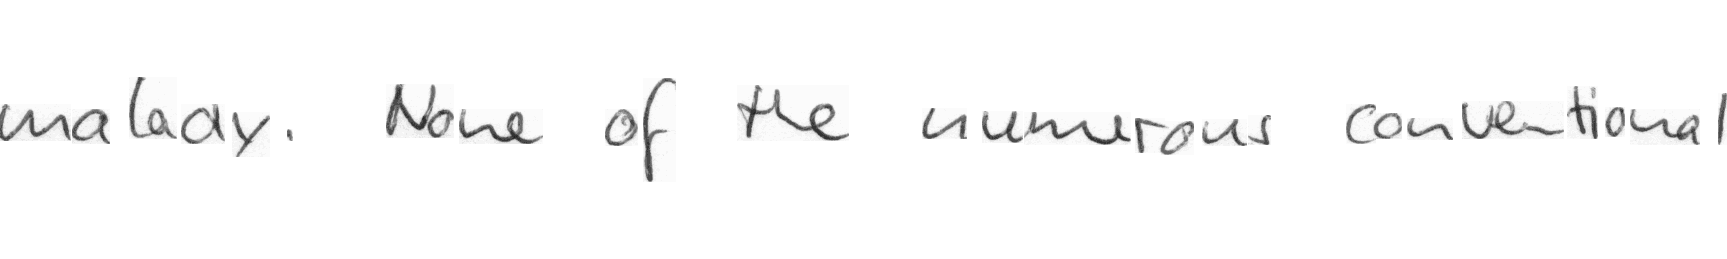 malady. None of the numerous conventional